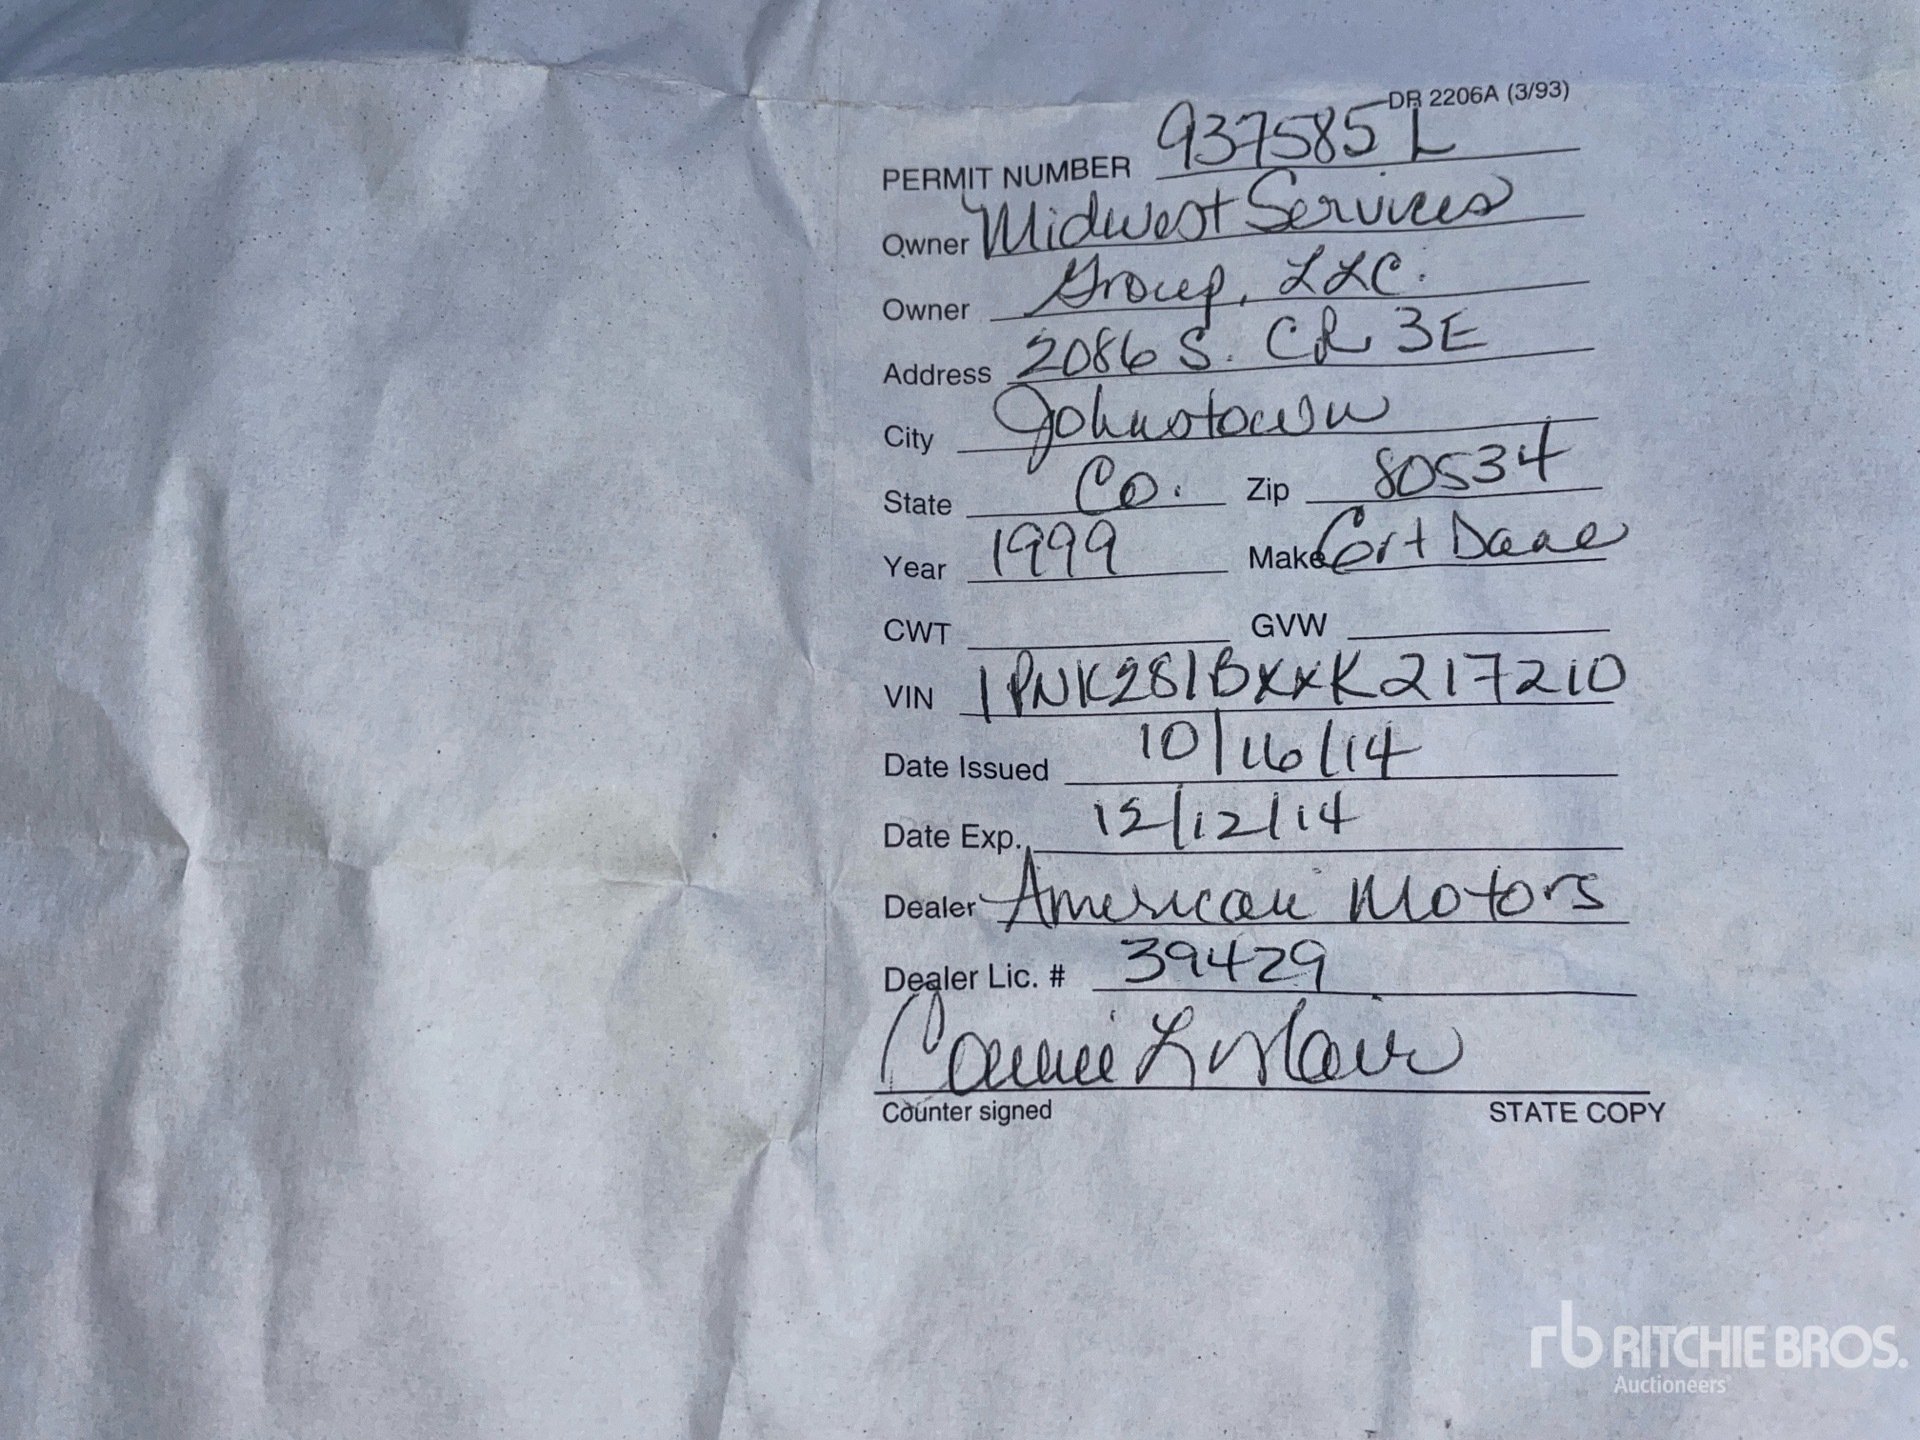 DR 2206A (3/93)
PERMIT NUMBER 937585L
Owner Midwest Services
Owner Group, LLC.
Address 2086 S. CR 3E
City Johnstown
State Co. Zip 80534
Year 1999 Make Cert Daae
CWT GVW
VIN 1PNK281BXXK217210
Date Issued 10/16/14
Date Exp. 12/12/14
Dealer American Motors
Dealer Lic. # 39429
Connie L
Counter signed STATE COPY
rb RITCHIE BROS.
Auctioneers